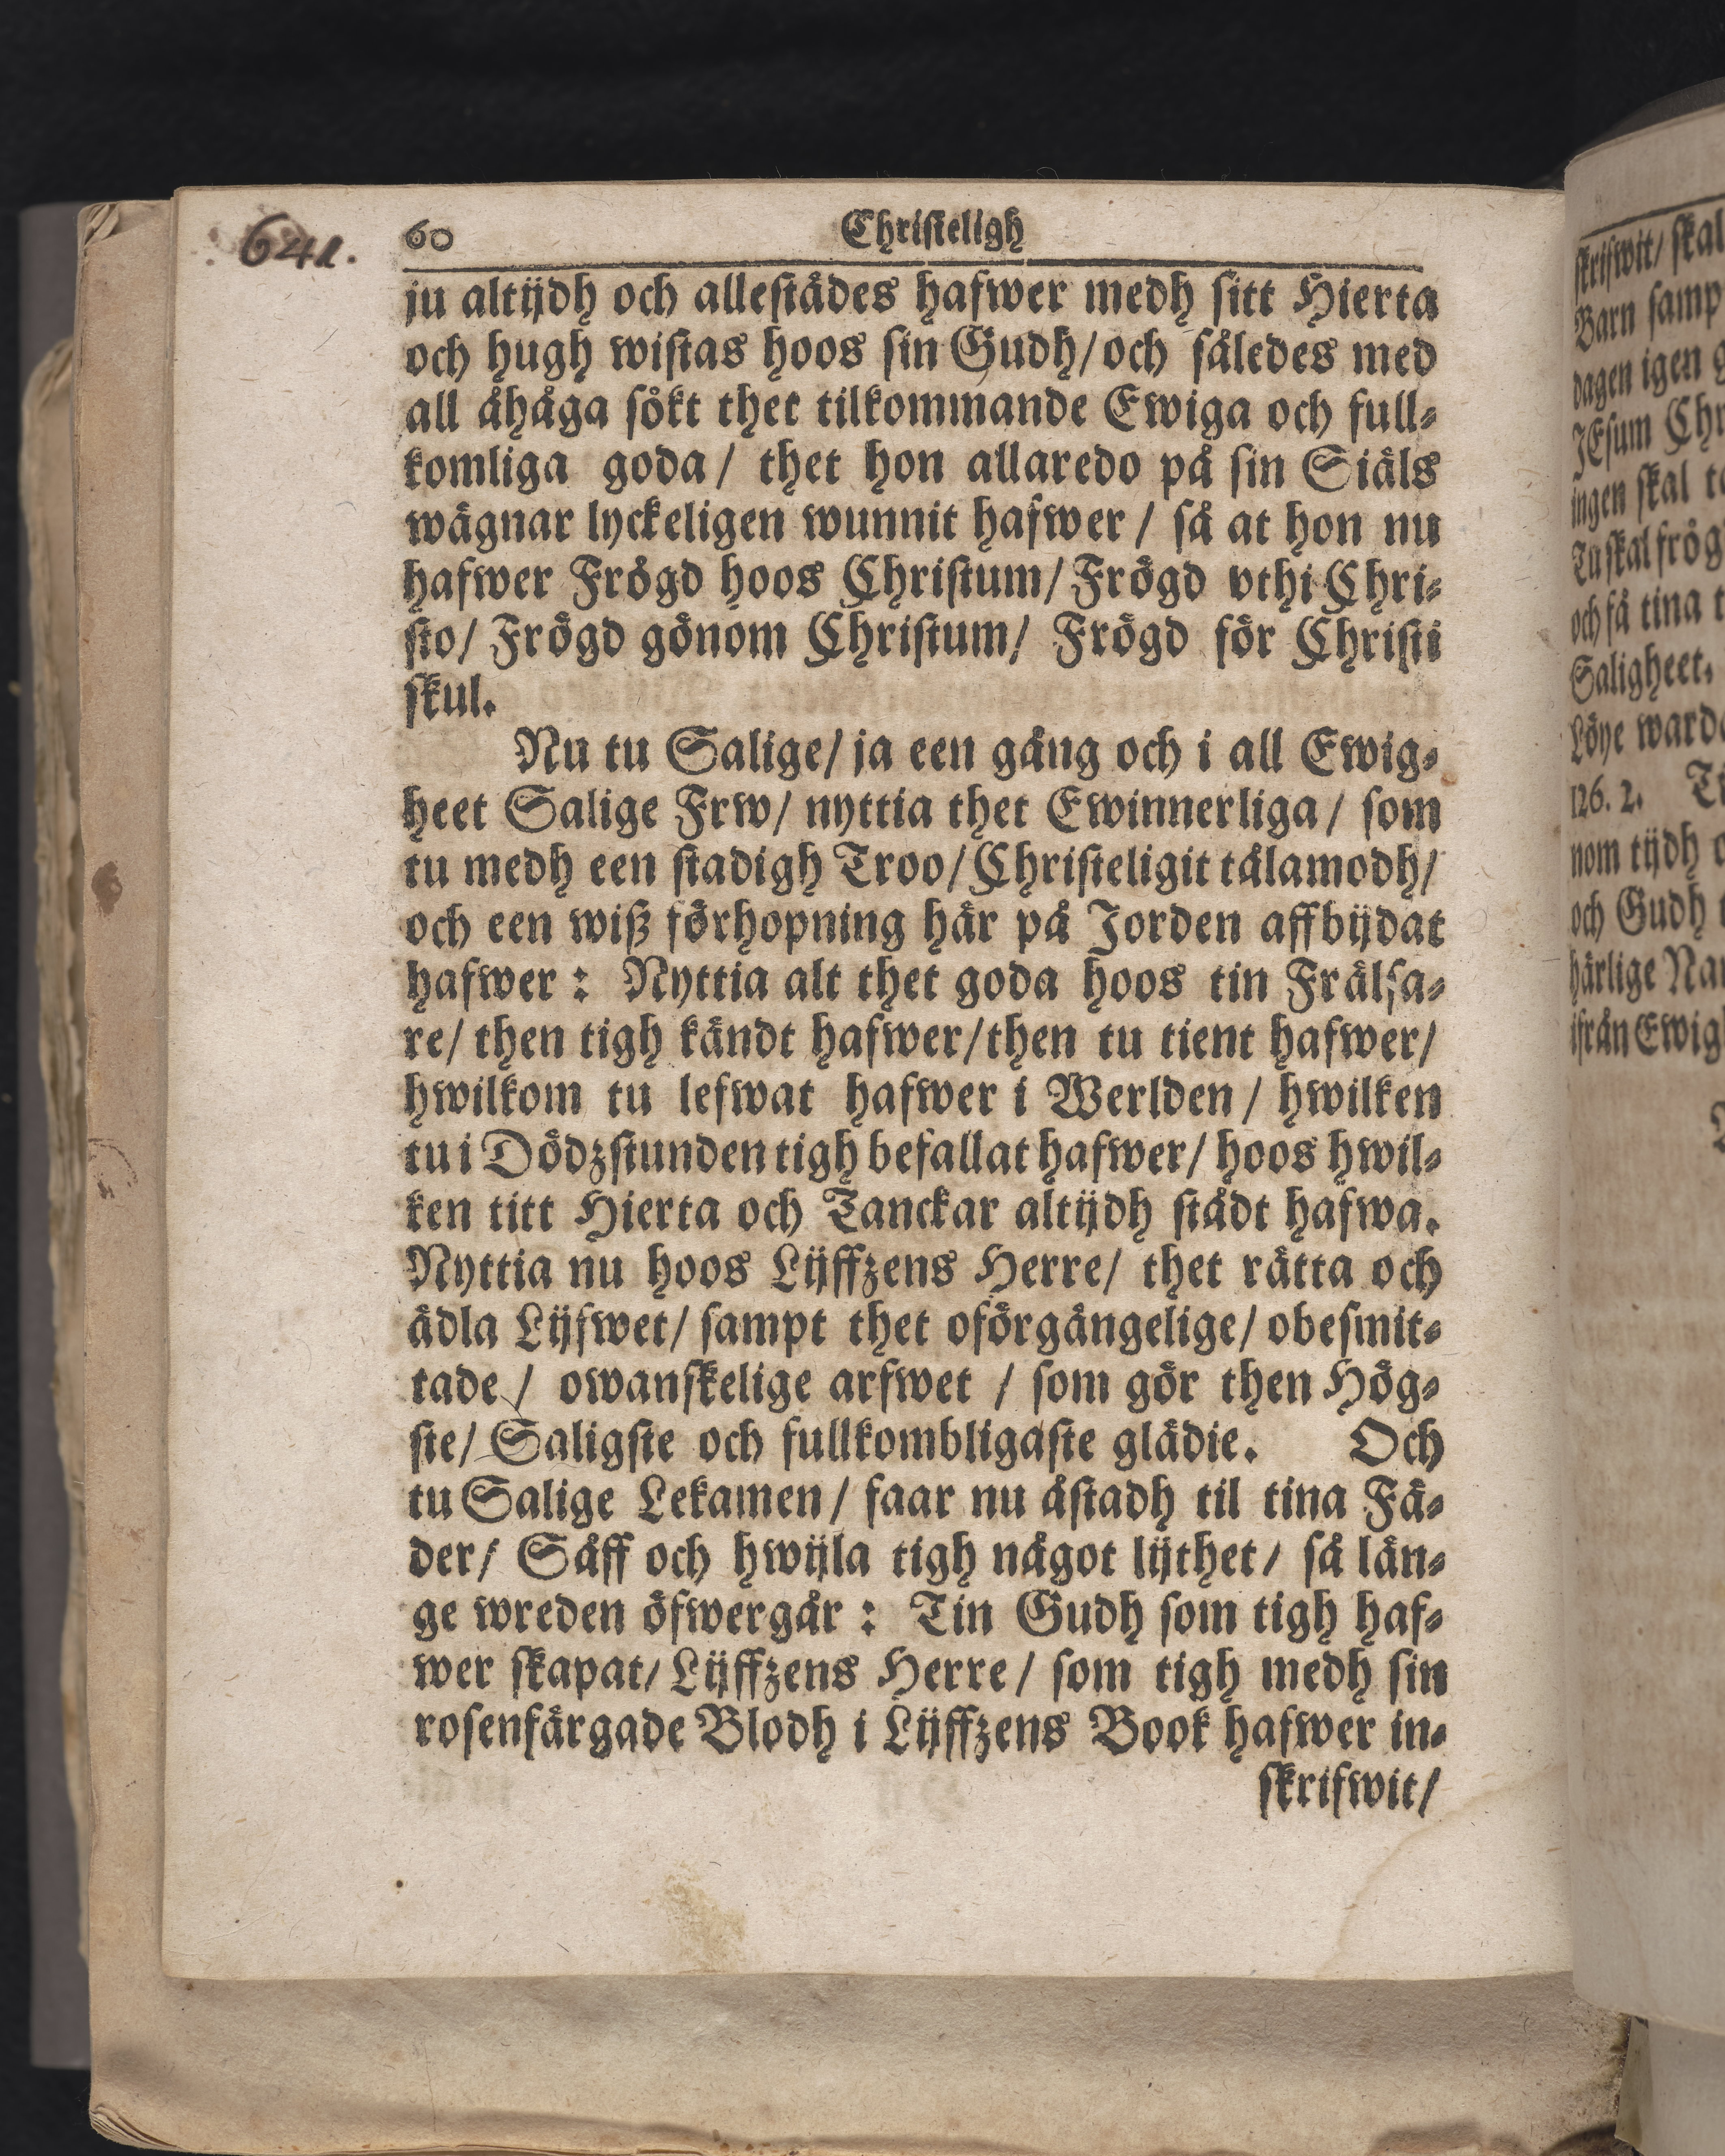 641.
60 Christeligh
ju altijdh och allestådes hafwer medh sitt Hierta
och hugh wistas hoos sin Gudh/och således med
all åhåga sökt thet tilkommande Ewiga och full-
komliga goda / thet hon allaredo på sin Siäls
wägnar lyckeligen wunnit hafwer / så at hon nu
hafwer Frögd hoos Christum/Frögd vthi Chri-
sto/ Frögd gönom Christum/ Frögd för Christi
skul.
Nu tu Salige/ ja een gång och i all Ewig-
heet Salige Frw/ nyttia thet Ewinnerliga / som
tu medh een stadigh Troo/Christeligit tålamodh/
och een wiß förhopning här på Jorden affbijdat
hafwer : Nyttia alt thet goda hoos tin Frälsa-
re/ then tigh kändt hafwer/then tu tient hafwer/
hwilkom tu lefwat hafwer i Werlden / hwilken
tu i Dödzstunden tigh befallat hafwer/ hoos hwil-
ken titt Hierta och Tanckar altijdh städt hafwa.
Nyttia nu hoos Lijffzens Herre/ thet rätta och
ädla Lijfwet/ sampt thet oförgängelige/ obesmit-
tade / owanskelige arfwet / som gör then Hög-
ste/ Saligste och fullkombligaste glädie. Och
tu Salige Lekamen / faar nu åstadh til tina Fä-
der/ Såff och hwijla tigh något lijthet/ så län-
ge wreden öfwergår : Tin Gudh som tigh haf-
wer skapat/ Lijffzens Herre / som tigh medh sin
rosenfärgade Blodh i Lijffzens Book hafwer in-
skrifwit/
skrifwit/ skal
Barn samp
dagen igen g
JEsum Chr
ingen skal
Tu skal frög
och få tina t
Saligheet.
Löye warde
126. 2. Ti
nom tijdh
och Gudh
härlige Na
ifrån Ewig